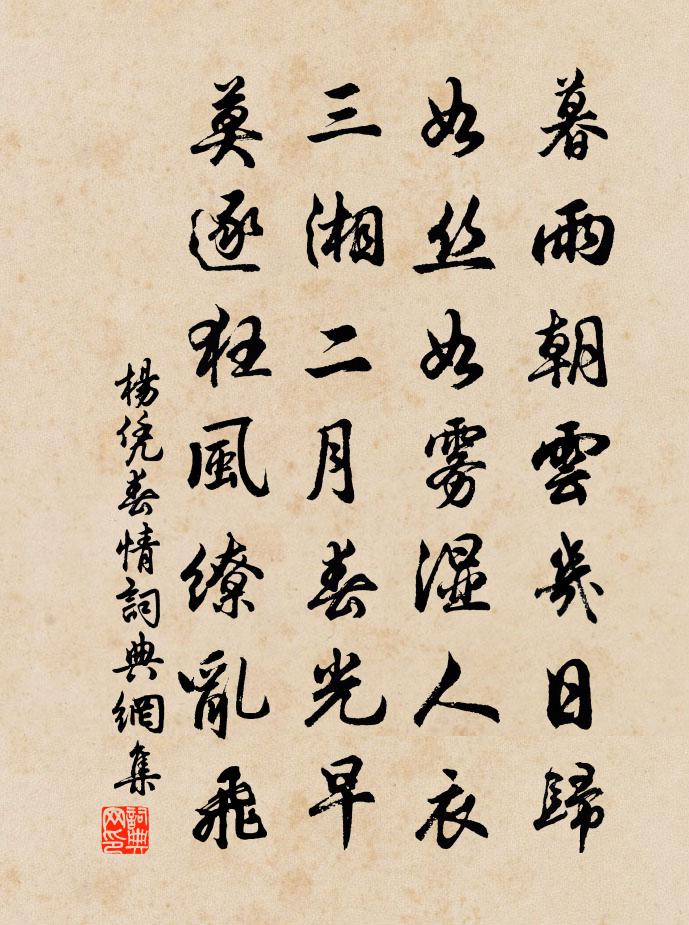 暮雨朝雲幾日歸
如丝如雾湿人衣
三湘二月春光早
莫逐狂風繚亂飛
楊凭春情詞典網集
詞典网印